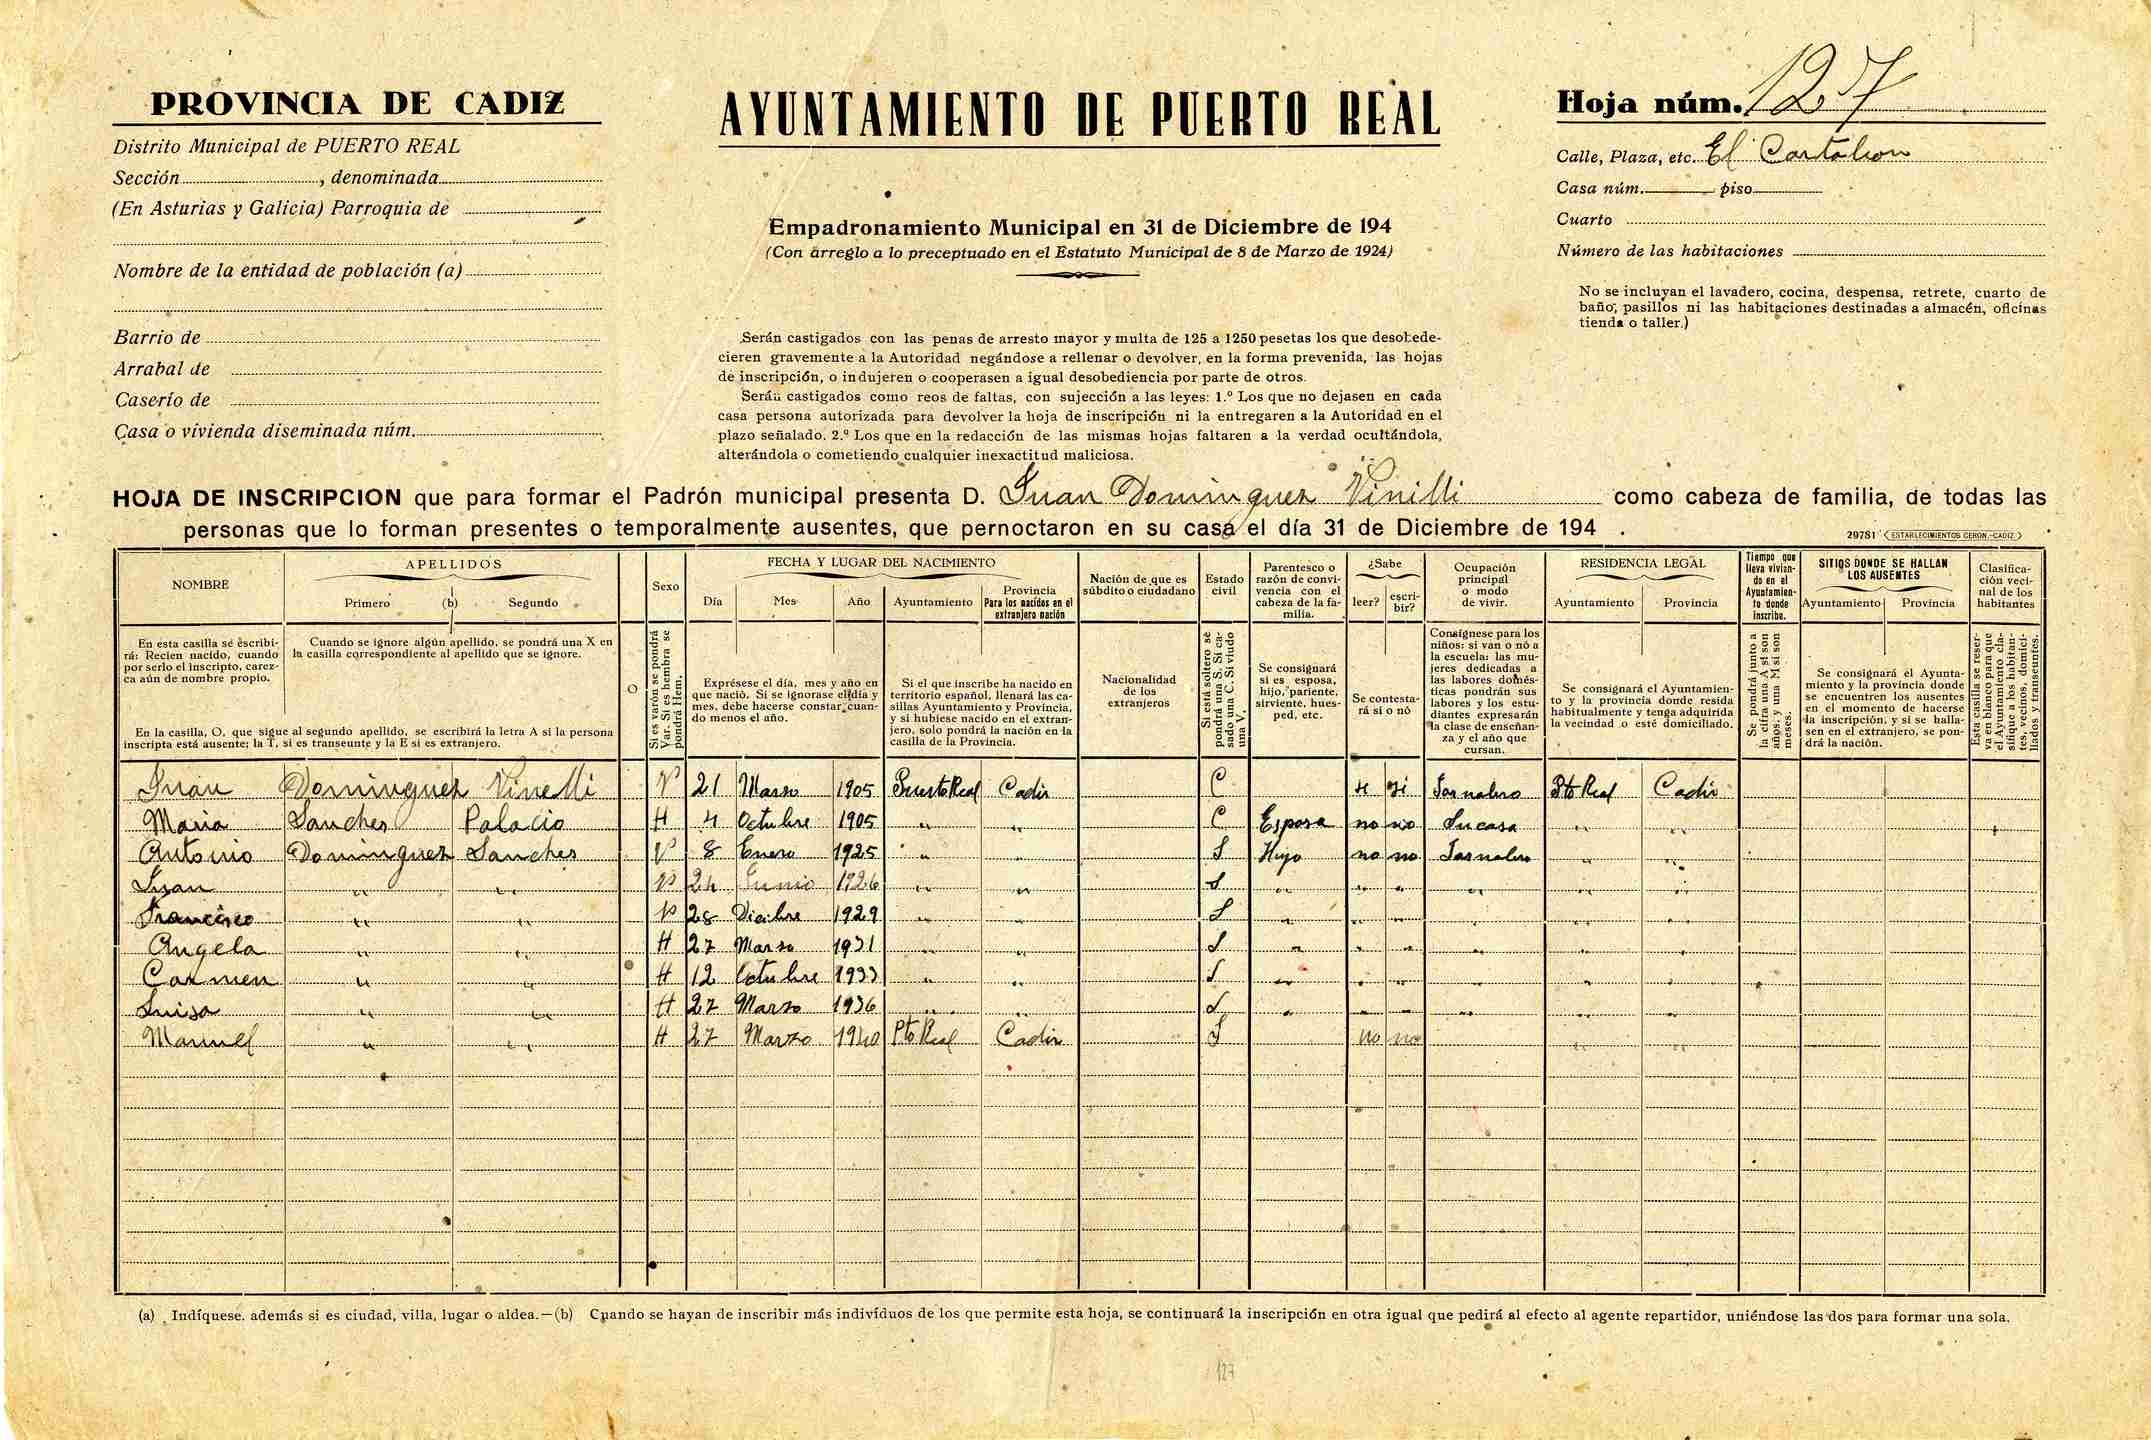 PROVINCIA DE CADIZ
Distrito Municipal de PUERTO REAL
Sección , denominada
(En Asturias y Galicia) Parroquia de
Nombre de la entidad de población (a)
Barrio de
Arrabal de
Caserío de
Casa o vivienda diseminada núm.
AYUNTAMIENTO DE PUERTO REAL
Empadronamiento Municipal en 31 de Diciembre de 194
(Con arreglo a lo preceptuado en el Estatuto Municipal de 8 de Marzo de 1924)
Serán castigados con las penas de arresto mayor y multa de 125 a 1250 pesetas los que desobede-
cieren gravemente a la Autoridad negándose a rellenar o devolver, en la forma prevenida, las hojas
de inscripción, o indujeren o cooperasen a igual desobediencia por parte de otros.
Serán castigados como reos de faltas, con sujección a las leyes: 1.º Los que no dejasen en cada
casa persona autorizada para devolver la hoja de inscripción ni la entregaren a la Autoridad en el
plazo señalado. 2.º Los que en la redacción de las mismas hojas faltaren a la verdad ocultándola,
alterándola o cometiendo cualquier inexactitud maliciosa.
Hoja núm. 127
Calle, Plaza, etc. El
Casa núm. piso
Cuarto
Número de las habitaciones
No se incluyan el lavadero, cocina, despensa, retrete, cuarto de
baño, pasillos ni las habitaciones destinadas a almacén, oficinas
tienda o taller.)
HOJA DE INSCRIPCION que para formar el Padrón municipal presenta D. Juan Dominguez Vinilli como cabeza de familia, de todas las
personas que lo forman presentes o temporalmente ausentes, que pernoctaron en su casa el día 31 de Diciembre de 194 .
29781 ESTABLECIMIENTOS CERON.-CADIZ
NOMBRE
APELLIDOS
Primero (b) Segundo
O
Sexo
FECHA Y LUGAR DEL NACIMIENTO
Día Mes Año Ayuntamiento
Provincia
Para los nacidos en el
extranjero nación
Nación de que es
súbdito o ciudadano
Estado
civil
Parentesco o
razón de convi-
vencia con el
cabeza de la fa-
milia.
¿Sabe
leer? escri-
bir?
Ocupación
principal
o modo
de vivir.
RESIDENCIA LEGAL
Ayuntamiento Provincia
Tiempo que
lleva vivien-
do en el
Ayuntamien-
to donde
inscribe.
SITIOS DONDE SE HALLAN
LOS AUSENTES
Ayuntamiento Provincia
Clasifica-
ción veci-
nal de los
habitantes
En esta casilla se escribi-
rá: Recien nacido, cuando
por serlo el inscripto, carez-
ca aún de nombre propio.
Cuando se ignore algún apellido, se pondrá una X en
la casilla correspondiente al apellido que se ignore.
En la casilla, O, que sigue al segundo apellido, se escribirá la letra A si la persona
inscripta está ausente; la T, si es transeunte y la E si es extranjero.
Si es varón se pondrá
Var. Si es hembra se
pondrá Hem.
Exprésese el día, mes y año en
que nació. Si se ignorase el día y
mes, debe hacerse constar cuan-
do menos el año.
Si el que inscribe ha nacido en
territorio español, llenará las ca-
sillas Ayuntamiento y Provincia,
y si hubiese nacido en el extran-
jero, solo pondrá la nación en la
casilla de la Provincia.
Nacionalidad
de los
extranjeros
Si está soltero se
pondrá una S. Si ca-
sado una C. Si viudo
una V.
Se consignará
si es esposa,
hijo, pariente,
sirviente, hues-
ped, etc.
Se contesta-
rá si o nó
Consígnese para los
niños: si van o nó a
la escuela: las mu-
jeres dedicadas a
las labores domés-
ticas pondrán sus
labores y los estu-
diantes expresarán
la clase de enseñan-
za y el año que
cursan.
Se consignará el Ayuntamien-
to y la provincia donde resida
habitualmente y tenga adquirida
la vecindad o esté domiciliado.
Se pondrá junto a
la cifra una A si son
años, y una M si son
meses.
Se consignará el Ayunta-
miento y la provincia donde
se encuentren los ausentes
en el momento de hacerse
la inscripción, y si se halla-
sen en el extranjero, se pon-
drá la nación.
Esta casilla se reser-
va en blanco para que
el Ayuntamiento cla-
sifique a los habitan-
tes, vecinos, domici-
liados y transeuntes.
Juan Dominguez Vinelli V 21 Marzo 1905 Puerto Real Cadiz C si si Jornalero Pto Real Cadiz
Maria Sanches Palacio H 4 Octubre 1905 " " C Esposa no no Su casa " "
Antonio Dominguez Sanches V 8 Enero 1925 " " S Hijo no no Jornalero " "
Juan " " V 24 Junio 1926 " " S " " " " " "
Francisco " " V 28 Dicibre 1929 " " S " " " " " "
Angela " " H 27 Marzo 1931 " " S " " " " " "
Carmen " " H 12 Octubre 1933 " " S " " " " " "
Luisa " " H 27 Marzo 1936 " " S " " " " " "
Manuel " " H 27 Marzo 1940 Pto Real Cadiz S no no " "
(a) Indíquese, además si es ciudad, villa, lugar o aldea.—(b) Cuando se hayan de inscribir más indivíduos de los que permite esta hoja, se continuará la inscripción en otra igual que pedirá al efecto al agente repartidor, uniéndose las dos para formar una sola.
127